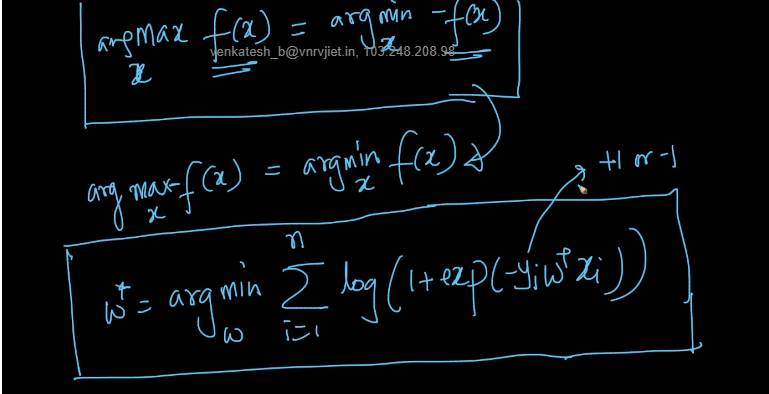 argmax_x f(x) = argmin_x -f(x)
venkatesh_b@vnrvjiet.in, 103.248.208.98
arg max_x -f(x) = argmin_x f(x)
+1 or -1
w* = argmin_w Σ_{i=1}^{n} log(1+exp(-y_i w^T x_i))